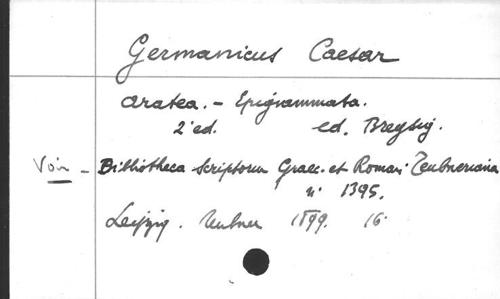 Germanicus Caesar
Aratea. – Epigrammata.
2e ed. ed. Breysig.
Voir – Bibliotheca Scriptorum Graec. et Roman. Teubneriana
n° 1395.
Leipzig. Teubner 1899. 16°